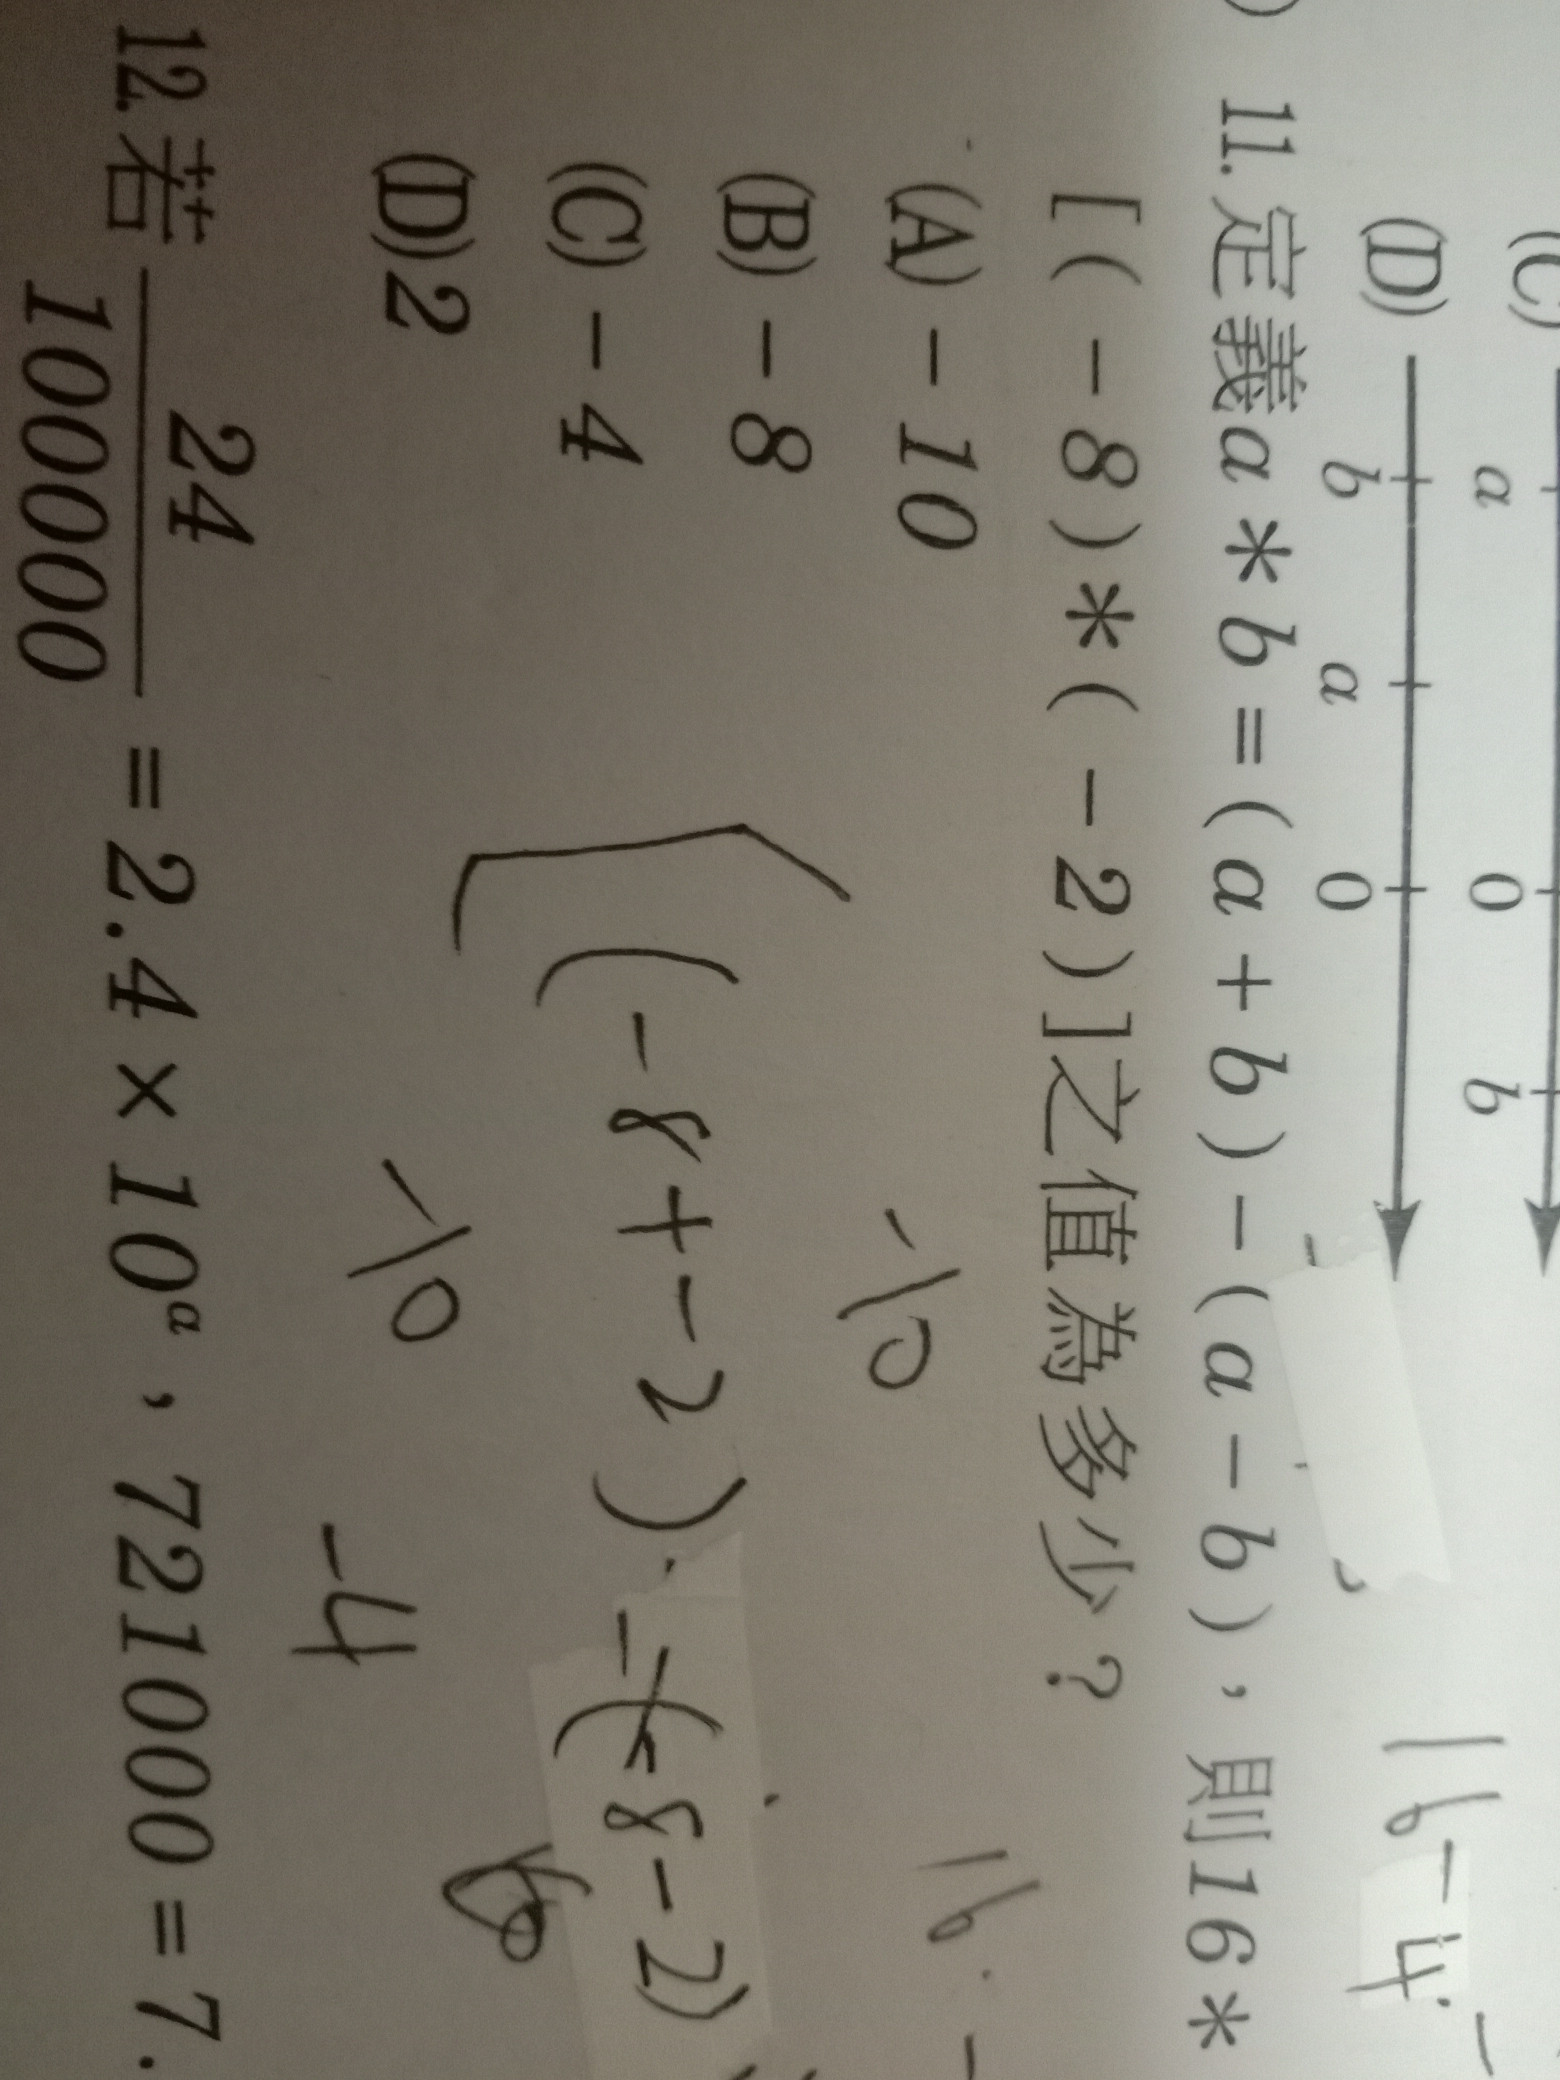 (C)
a 0 b
(D)
b a 0
16-4-
) 11.定義a*b=(a+b)-(a-b),則16*
[(-8)*(-2)]之值為多少?
(A)-10
-10
16
(B)-8
(C)-4
[(-8+-2)-(-8-2)
(D)2
-10
-4
12.若 24/100000 =2.4×10ᵃ,721000=7.